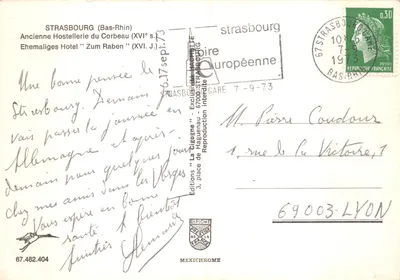 STRASBOURG (Bas-Rhin)
Ancienne Hostellerie du Corbeau (XVIe s.)
Ehemaliges Hotel "Zum Raben" (XVI. J.)
6.17 sept.73
strasbourg
foire
européenne
STRASBOURG GARE 7-9-73
67 STRASBOURG GARE
BAS-RHIN
0,30
Une bonne pensée de
Strasbourg. Demain je
vais passer la journée en
Allemagne et après-
demain pour quelques jours
chez mes amis dans les Vosges
Vous espère en bonne
santé. A bientôt
Amitiés
Editions "La Cigogne"
3, place de Haguenau - 67000 STRASBOURG
Reproduction interdite
M. Pierre Coudour
1 rue de la Victoire, 1
69003-LYON
67.482.404
MEXICHROME